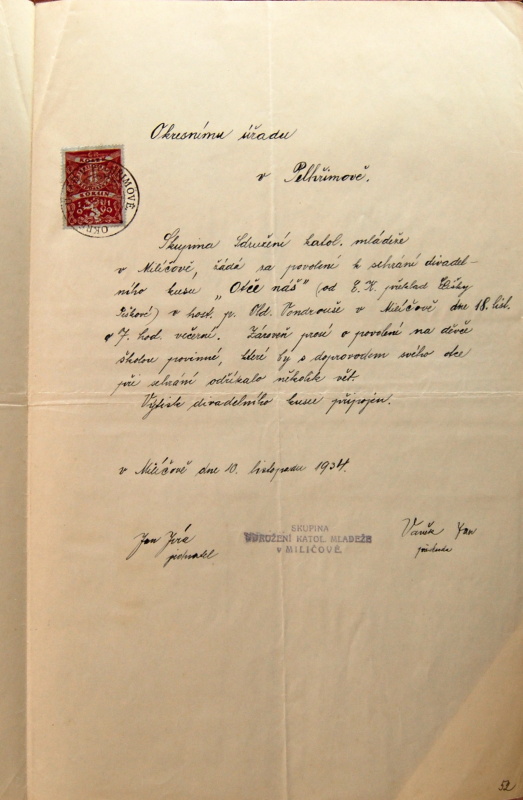 Okresnímu úřadu
v Pelhřimově.
Skupina Sdružení katol. mládeže
v Milíčově, žádá za povolení k sehrání divadel-
ního kusu „Otče náš" (od E. K. překlad Elišky
) v host. p. Old. Vondrouše v Milíčově dne 18. list.
v 7. hod. večerní. Zároveň prosí o povolení na děvče
školou povinné, které by s doprovodem svého otce
při sehrání odříkalo několik vět.
Výtisk divadelního kusu připojen.
v Milíčově dne 10. listopadu 1934.
Jan
jednatel
SKUPINA
SDRUŽENÍ KATOL. MLÁDEŽE
v MILÍČOVĚ.
Vaněk Jan
předseda
52